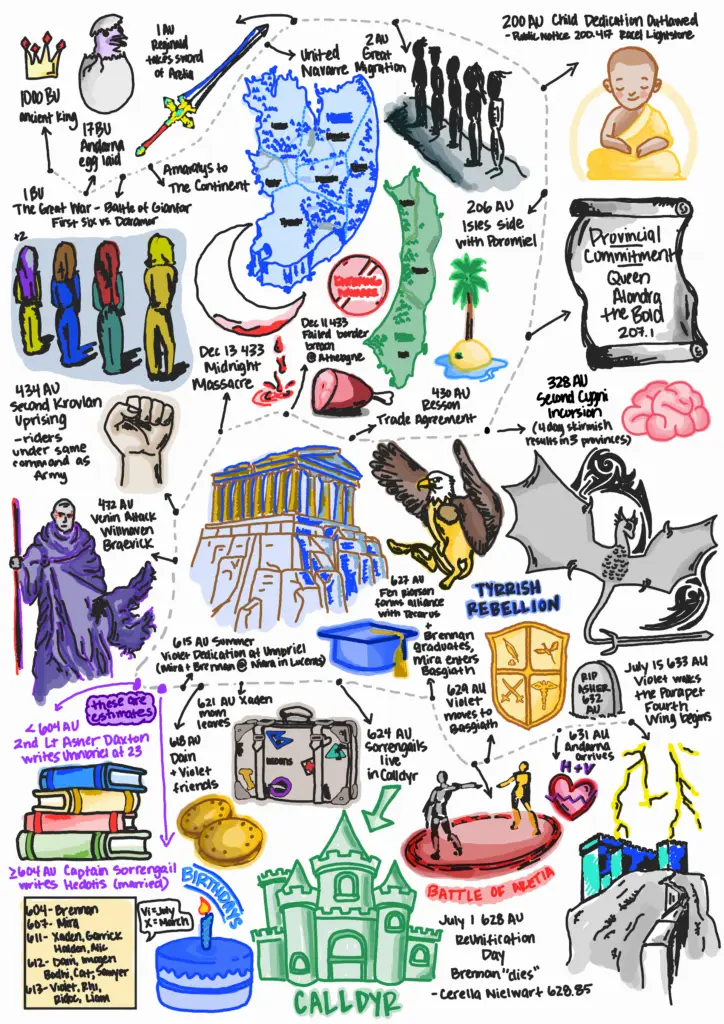 1000 BU
ancient king
17 BU
Andarna
egg laid
1 AU
Reginald
takes sword
of Aretia
United
Navarre
2 AU
Great
Migration
200 AU Child Dedication Outlawed
- Public Notice 200.417 Racel Lightstone
Amaralys to
The Continent
1 BU
The Great War - Battle of Gianfar
First Six vs. Daramor
+2
206 AU
Isles side
with Poromiel
Provincial
Commitment
Queen
Alondra
the Bold
207.1
Dec 13 433
Midnight
Massacre
Dec 11 433
Failed border
breach
@ Athebyne
430 AU
Resson
Trade Agreement
328 AU
Second Cygni
Incursion
(4 day skirmish
results in 3 provinces)
434 AU
Second Krovlan
Uprising
- riders
under same
command as
Army
472 AU
Venin Attack
Willhaven
Draevick
627 AU
Fen Riorson
forms alliance
with Tecarus
TYRRISH
REBELLION
615 AU Summer
Violet Dedication at Unnbriel
(Mira + Brennan @ Niara in Luceras)
+
Brennan
graduates,
Mira enters
Basgiath
629 AU
Violet
moves to
Basgiath
RIP
ASHER
632
AU
July 15 633 AU
Violet walks
the Parapet
Fourth
Wing begins
these are
estimates
< 604 AU
2nd Lt Asher Daxton
writes Unnbriel at 23
621 AU Xaden
mom
leaves
618 AU
Dain
+ Violet
friends
HEDOTIS
624 AU
Sorrengails
live
in Calldyr
631 AU
Andarna
arrives
H+V
≥604 AU Captain Sorrengail
writes Hedotis (married)
BATTLE OF ARETIA
604- Brennan
607- Mira
611- Xaden, Garrick
Halden, Alic
612- Dain, Imogen
Bodhi, Cat, Sawyer
613- Violet, Rhi,
Ridoc, Liam
BIRTHDAYS
Vi=July
X=March
CALLDYR
July 1 628 AU
Reunification
Day
Brennan "dies"
- Cerella Nielwart 628.85